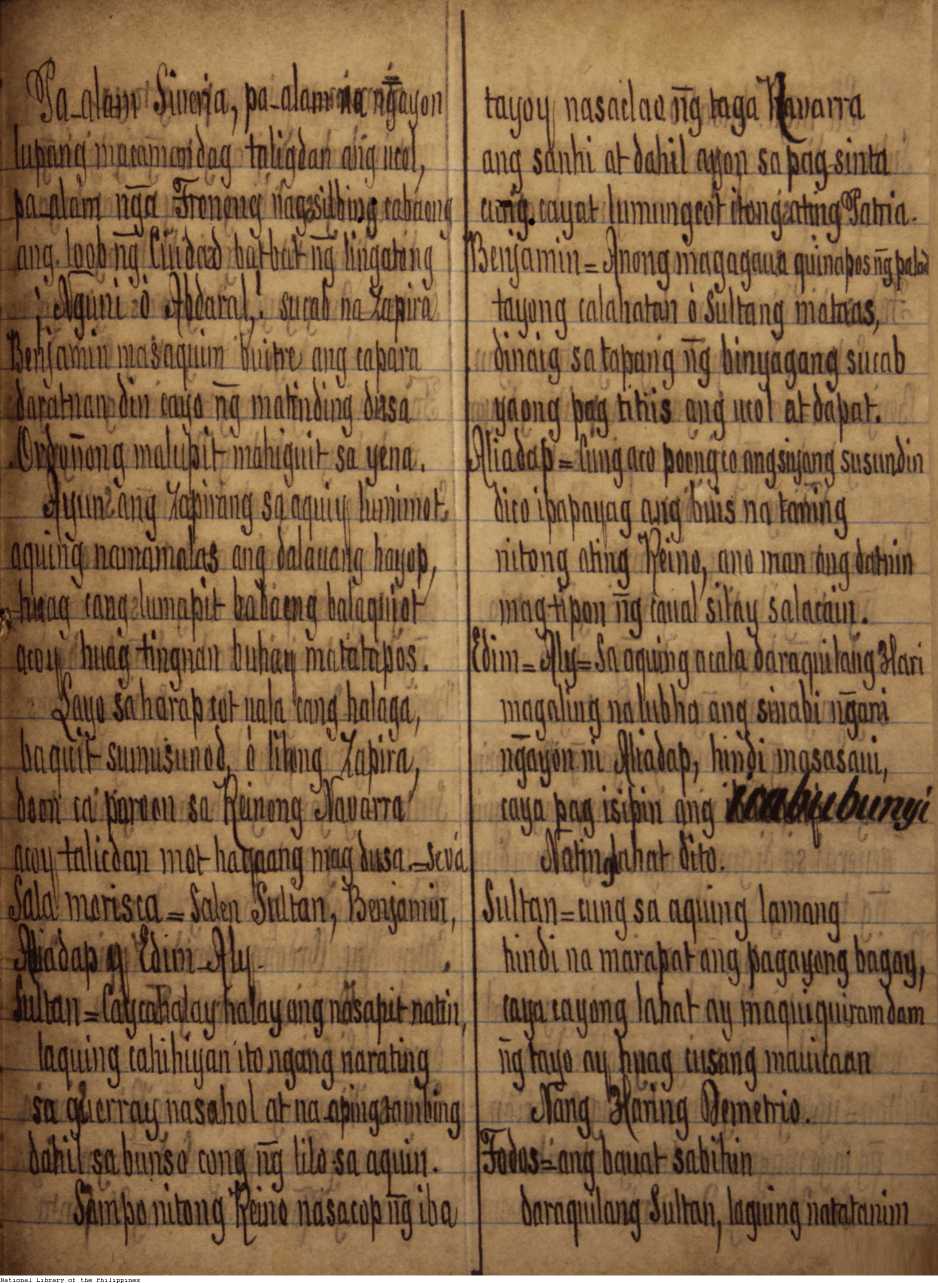 Pa-alam Siveria, pa-alam na ng̃ayon
lupang macamandag taligdan ang ucol,
pa-alam ng̃a Tronong nagsilbing cabaong
ang loob ng̃ Ciudad batbat ng̃ lingatong
¡Ng̃uni ó Abdaral! sucab na Zapira
Benjamin masaquim buitre ang capara
daratnan din cayo ng̃ matinding dusa
Ordoñong malupit mahiguit sa yena.
Ayun ang Zapirang sa aquiy lumimot
aquing namamalas ang dalauang hayop,
huag cang lumapit babaeng balaquiot
acoy huag tingnan buhay matatapos.
Layo sa harap cot uala cang halaga,
baquit sumusunod, ó lilong Zapira,
doon ca paroon sa Reinong Navarra
acoy talicdan mot hayaang mag dusa.=Seuá
Sala morisca = Salen Sultan, Benjamin,
Aliadap y Edim-Aly.
Sultan = Caycahalay halay ang násapit natin,
laquing cahihiyan ito ngang narating
sa guerray nasahol at na aping tambing
dahil sa bunsó cong ng̃ lilo sa aquin.
Sampo nitong Reino nasacop ng̃ iba
tayoy nasaclao ng̃ taga Navarra
ang sanhi at dahil ayon sa pag-sinta
cung cayat lumungcot itong ating Patria.
Benjamin = Anong magagaua quinapos ng̃ palad
tayong calahatan ó Sultang mataas,
dinaig sa tapang ng̃ binyagang sucab
yaong pag titiis ang ucol at dapat.
Aliadap = Cung aco poeng co ang siyang susundin
dico ipapayag ang buis na taning
nitong ating Reino, ano man ang datnin
mag-tipon ng̃ caual silay salacain.
Edim = Aly = Sa aquing acala daraquilang Hari
magaling na lubha ang sinabi ng̃ari
ng̃ayon ni Aliadap, hindi masasaui,
caya pag isipin ang icabubunyi
Nating lahat dito.
Sultan = cung sa aquing lamang
hindi na marapat ang pagayong bagay,
caya cayong lahat ay maquiquiramdam
ng̃ tayo ay huag cusang mauicaan
Nang Haring Demetrio.
Todos = ang bauat sabihin
daraquilang Sultan, laguing natatanim
National Library of the Philippines